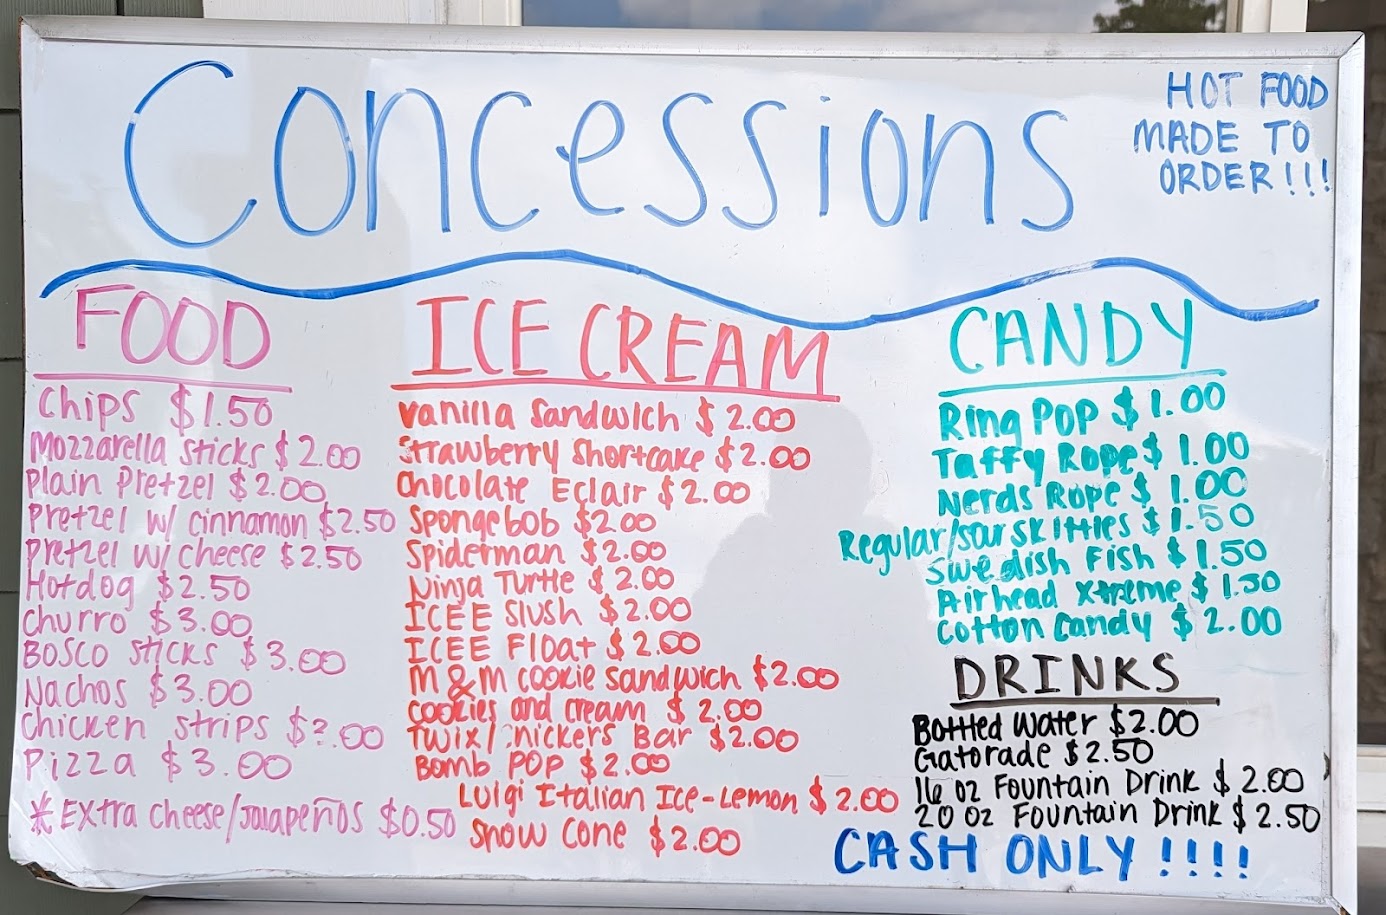 Concessions
HOT FOOD
MADE TO
ORDER!!!
FOOD
Chips $1.50
Mozzarella sticks $2.00
Plain Pretzel $2.00
Pretzel w/ cinnamon $2.50
Pretzel w/ cheese $2.50
Hotdog $2.50
Churro $3.00
BOSCO sticks $3.00
Nachos $3.00
Chicken strips
Pizza $3.00
* Extra Cheese/Jalapeños $0.50
ICE CREAM
Vanilla Sandwich $2.00
Strawberry Shortcake $2.00
Chocolate Eclair $2.00
Spongebob $2.00
Spiderman $2.00
Ninja Turtle $2.00
ICEE Slush $2.00
ICEE Float $2.00
M&M cookie sandwich $2.00
cookies and cream $2.00
Twix/Snickers Bar $2.00
Bomb POP $2.00
Luigi Italian Ice-Lemon $2.00
Snow Cone $2.00
CANDY
Ring POP $1.00
Taffy Rope $1.00
Nerds Rope $1.00
Regular/sour skittles $1.50
Swedish Fish $1.50
Airhead Xtreme $1.50
Cotton Candy $2.00
DRINKS
Bottled Water $2.00
Gatorade $2.50
16 oz Fountain Drink $2.00
20 oz Fountain Drink $2.50
CASH ONLY!!!!